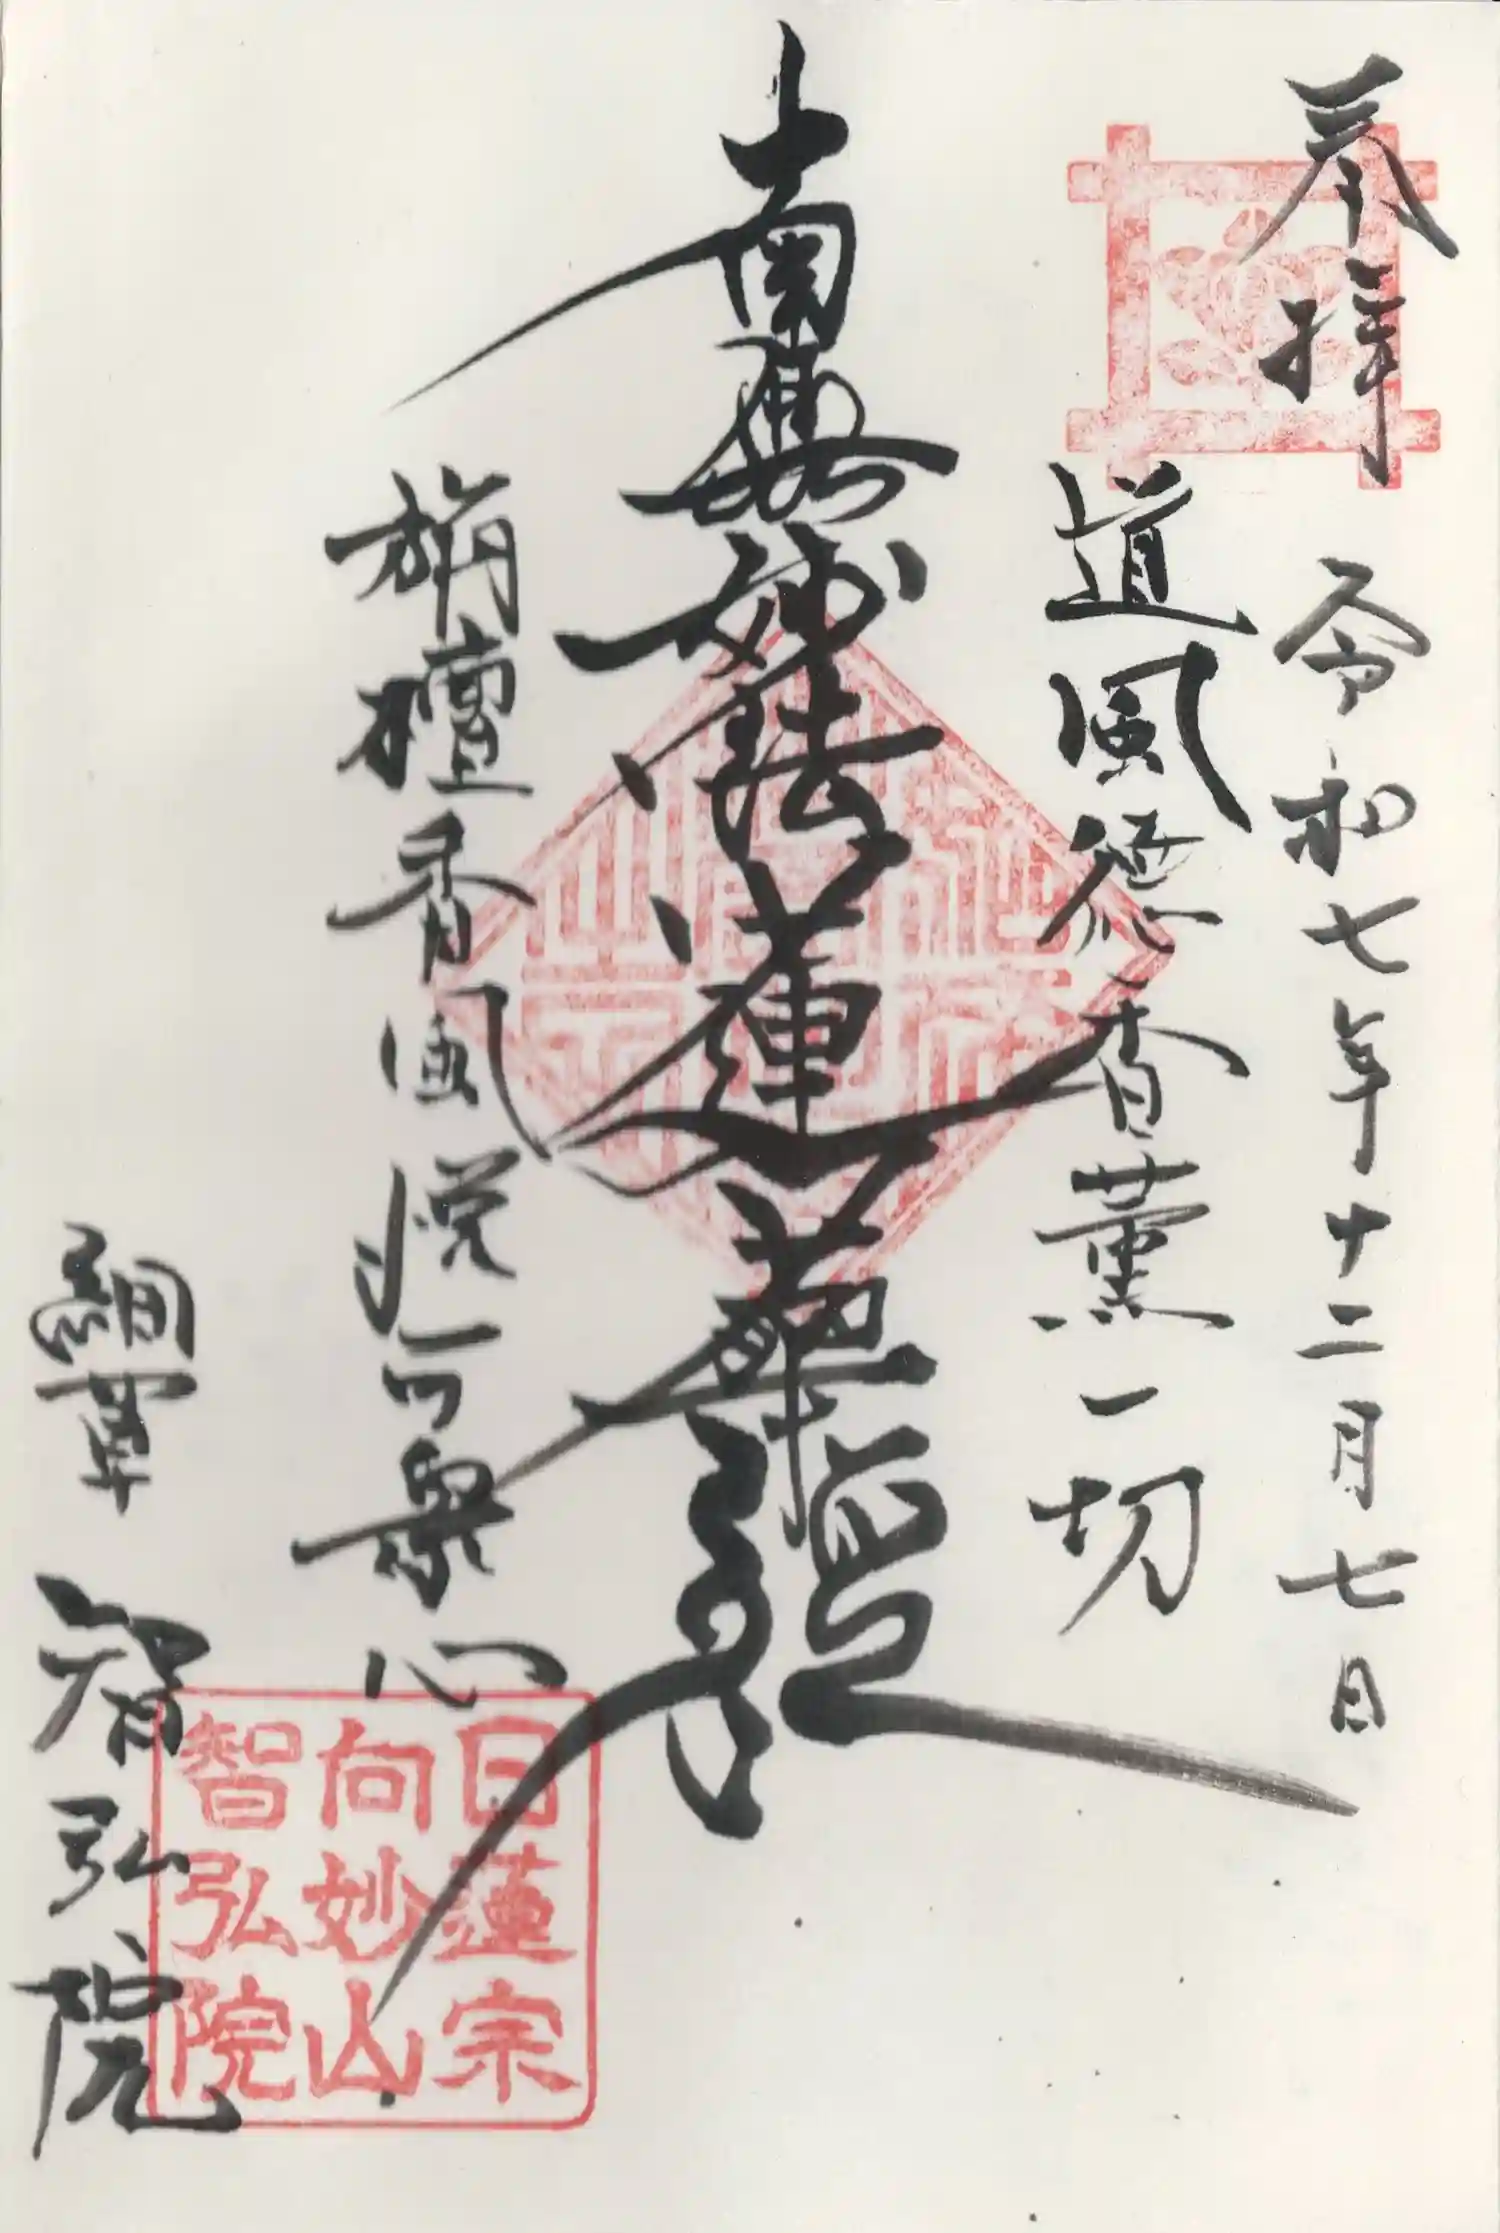 奉拝
令和七年十二月七日
道風徳香薫一切
南無妙法蓮華經
栴檀香風悦可衆心
智弘院
日蓮宗
向妙山
智弘院